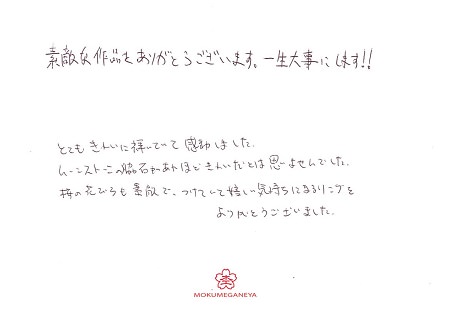 素敵な作品をありがとうございます。一生大事にします!!
とてもきれいに輝いていて感動しました。
ムーンストーンの脇石があれほどきれいだとは思いませんでした。
桜の花びらも素敵で、つけていて嬉しい気持ちになるリングを
ありがとうございました。
MOKUMEGANEYA